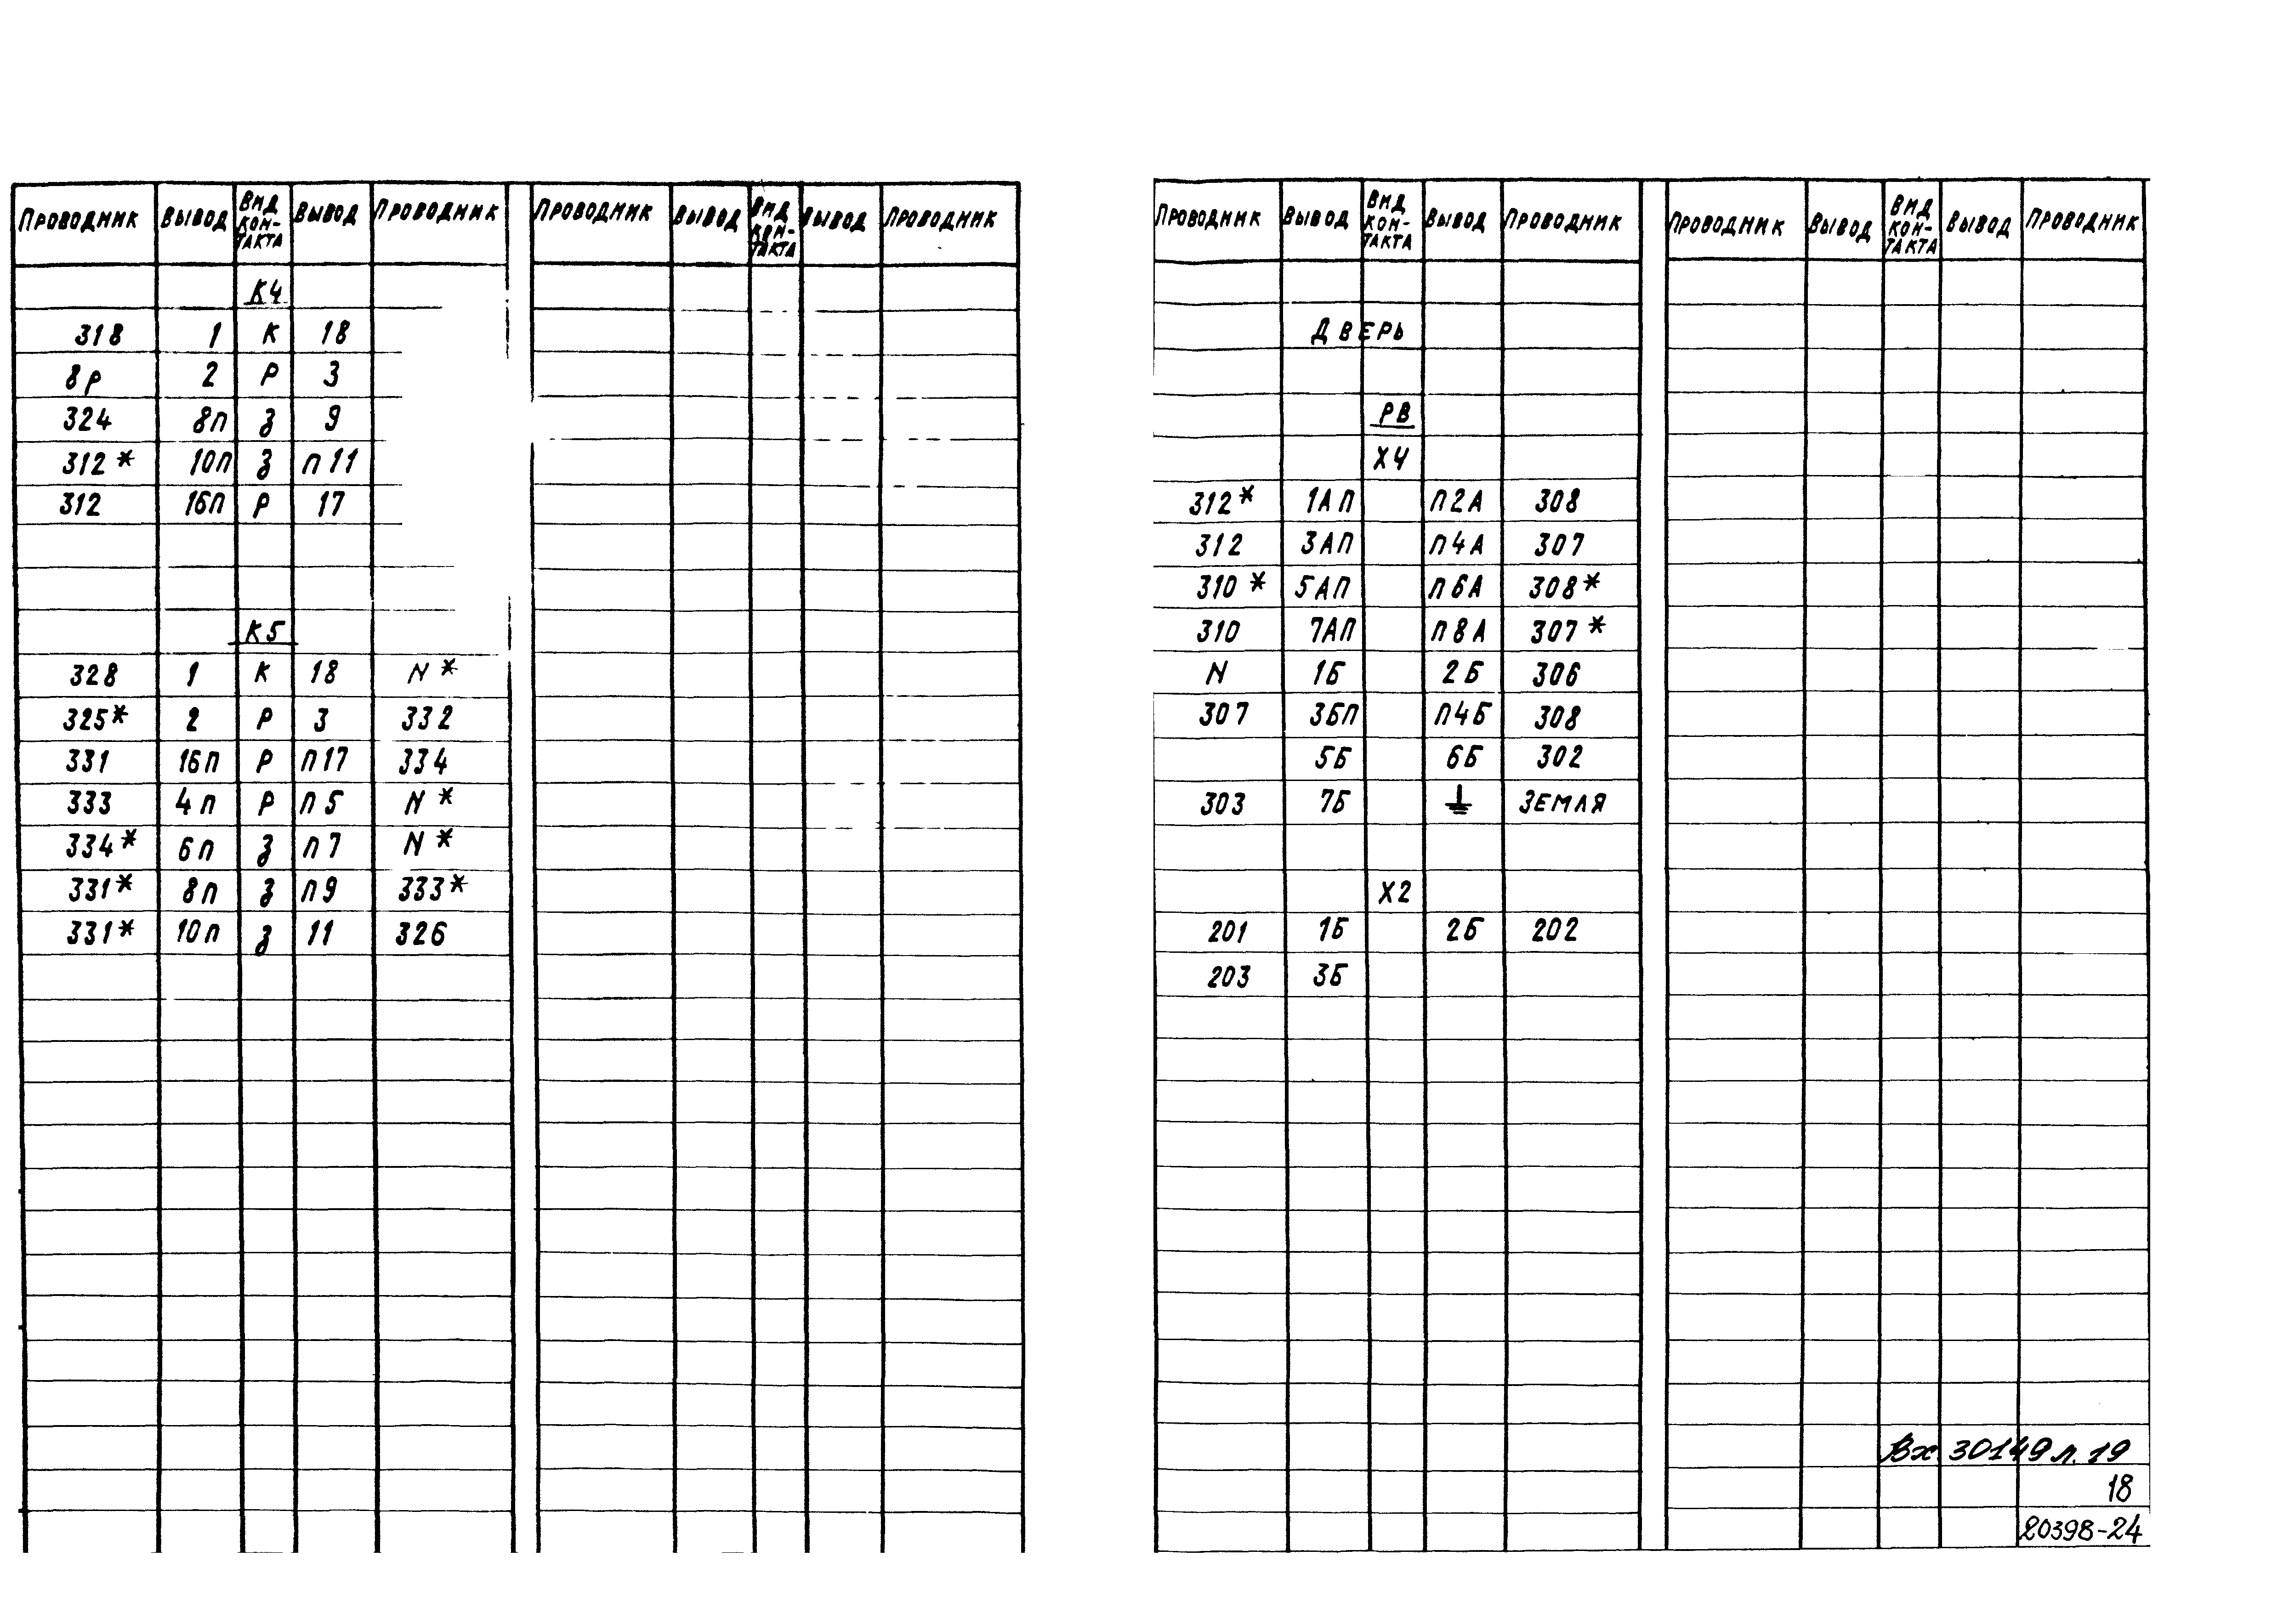 ПРОВОДНИК ВЫВОД ВИД КОН-ТАКТА ВЫВОД ПРОВОДНИК ПРОВОДНИК ВЫВОД ВИД КОН-ТАКТА ВЫВОД ПРОВОДНИК
К4
318 1 К 18
8Р 2 Р 3
324 8П З 9
312* 10П З П11
312 16П Р 17
К5
328 1 К 18 N*
325* 2 Р 3 332
331 16П Р П17 334
333 4П Р П5 N*
334* 6П З П7 N*
331* 8П З П9 333*
331* 10П З 11 326
ПРОВОДНИК ВЫВОД ВИД КОН-ТАКТА ВЫВОД ПРОВОДНИК ПРОВОДНИК ВЫВОД ВИД КОН-ТАКТА ВЫВОД ПРОВОДНИК
ДВЕРЬ
РВ
Х4
312* 1АП П2А 308
312 3АП П4А 307
310* 5АП П6А 308*
310 7АП П8А 307*
N 1Б 2Б 306
307 3БП П4Б 308
5Б 6Б 302
303 7Б ⏚ ЗЕМЛЯ
Х2
201 1Б 2Б 202
203 3Б
Вх. 30149 л. 19
18
20398-24